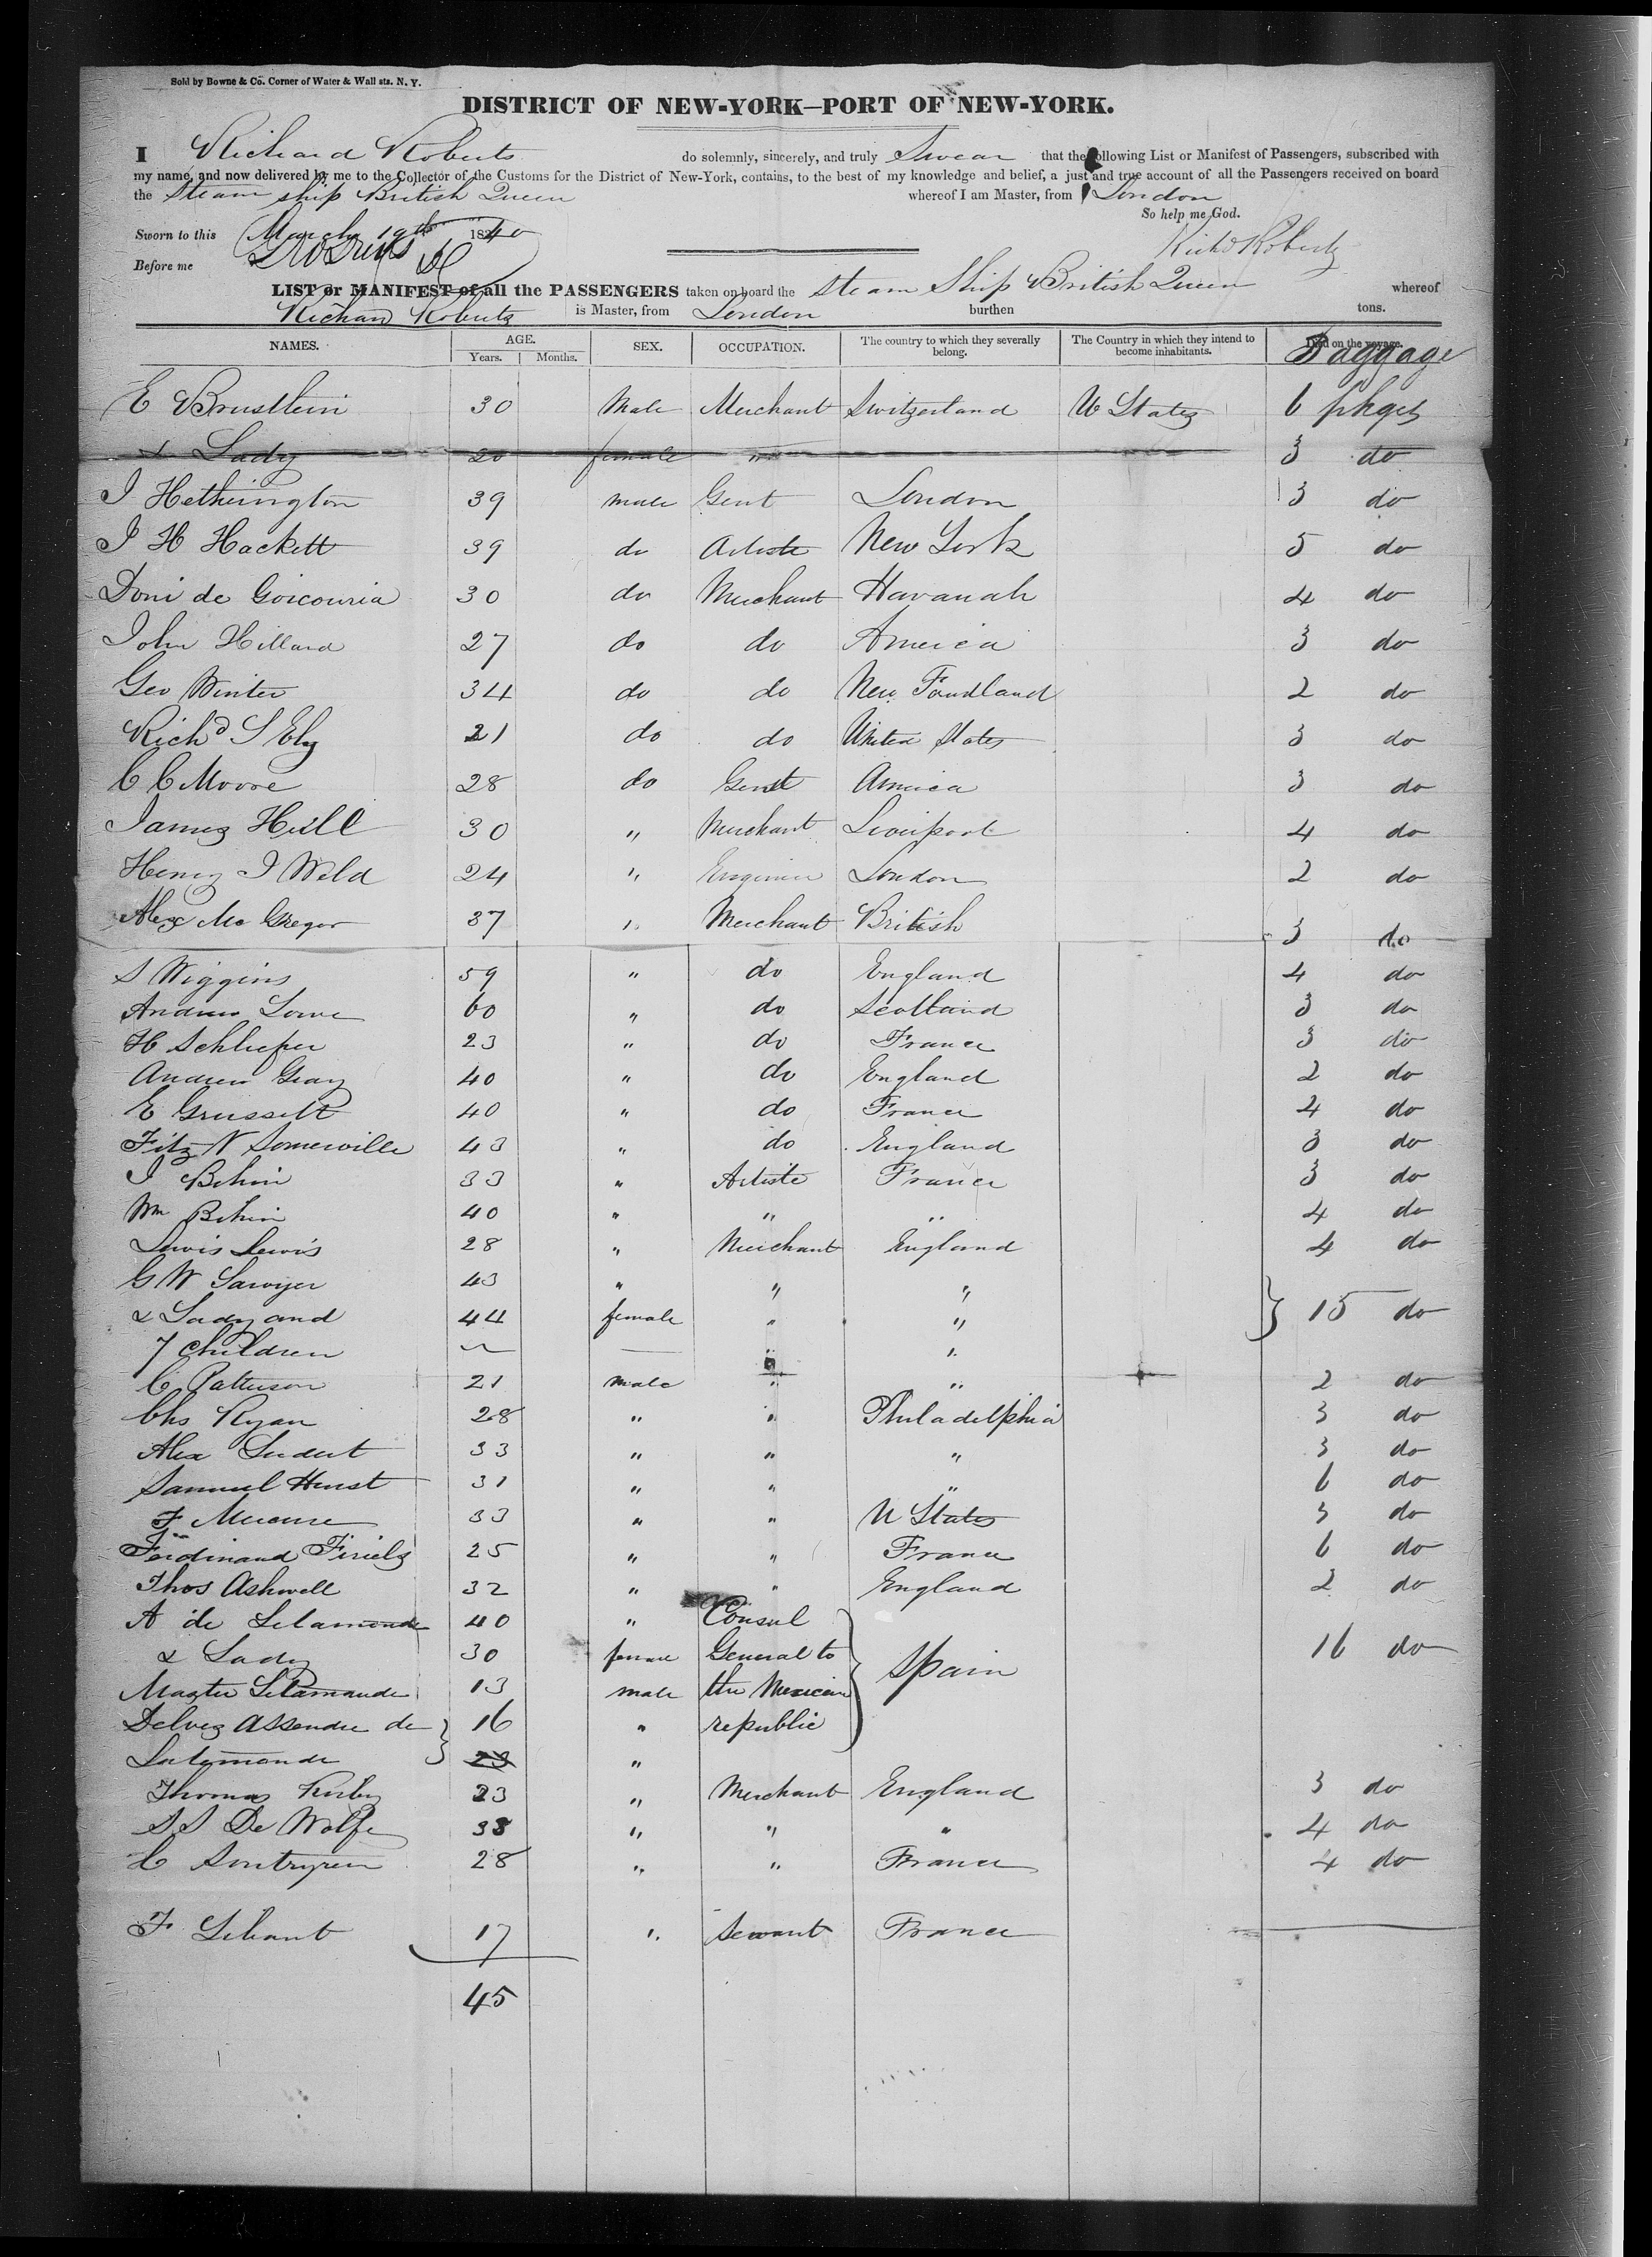 Sold by Bowne & Co. Corner of Water & Wall sts. N. Y.
DISTRICT OF NEW-YORK—PORT OF NEW-YORK.
I Richard Roberts do solemnly, sincerely, and truly Swear that the following List or Manifest of Passengers, subscribed with
my name, and now delivered by me to the Collector of the Customs for the District of New-York, contains, to the best of my knowledge and belief, a just and true account of all the Passengers received on board
the Steam ship British Queen whereof I am Master, from London
So help me God.
Sworn to this March 19th 1840
Richd Roberts
Before me
LIST or MANIFEST of all the PASSENGERS taken on board the steam Ship British Queen whereof
Richard Roberts is Master, from London burthen tons.
NAMES. AGE. Years. Months. SEX. OCCUPATION. The country to which they severally belong. The Country in which they intend to become inhabitants. Died on the voyage. Baggage
E Brustlein 30 Male Merchant Switzerland U States 6 pkges
& Lady 20 female " 3 do
J Hetherington 39 male Gent London 3 do
J H Hackett 39 do Artiste New York 5 do
Domi de Goicouria 30 do Merchant Havanah 4 do
John Hillard 27 do do America 3 do
Geo Winter 34 do do New Foundland 2 do
Richd S Ely 21 do do United States 3 do
C C Moore 28 do Gent America 3 do
James Hill 30 " Merchant Liverpool 4 do
Henry J Weld 24 " Engineer London 2 do
Alex Mc Gregor 37 " Merchant British 3 do
S Wiggins 59 " do England 4 do
Andrew Lowe 60 " do Scotland 3 do
H Schlieper 23 " do France 3 do
Andrew Gray 40 " do England 2 do
E Grussett 40 " do France 4 do
Fitz N Somerville 43 " do England 3 do
J Bihin 33 " Artiste France 3 do
Wm Bihin 40 " " " 4 do
Lewis Lewis 28 " Merchant England 4 do
G W Sawyer 43 " " "
& Lady and 44 female " " 15 do
7 Children " "
C Patterson 21 male " " 2 do
Chs Ryan 28 " " Philadelphia 3 do
Alex 33 " " " 3 do
Samuel Hurst 31 " " " 6 do
F 33 " " U States 3 do
Ferdinand 25 " " France 6 do
Thos Ashwell 32 " " England 2 do
A de 40 " Consul
& Lady 30 female General to Spain 16 do
Master 13 male the Mexican
de 16 " republic
23 "
Thomas Kirby 23 " Merchant England 3 do
S S De Wolfe 38 " " " 4 do
C 28 " " France 4 do
F 17 " Servant France
45